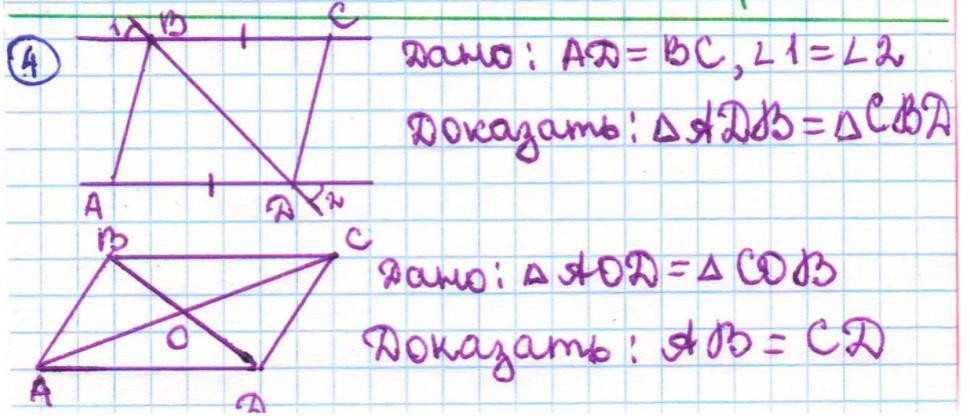 ④
1 B C
A D 2
Дано: AD = BC, ∠1 = ∠2
Доказать: △ADB = △CBD
B C
O
A D
Дано: △AOD = △COB
Доказать: AB = CD